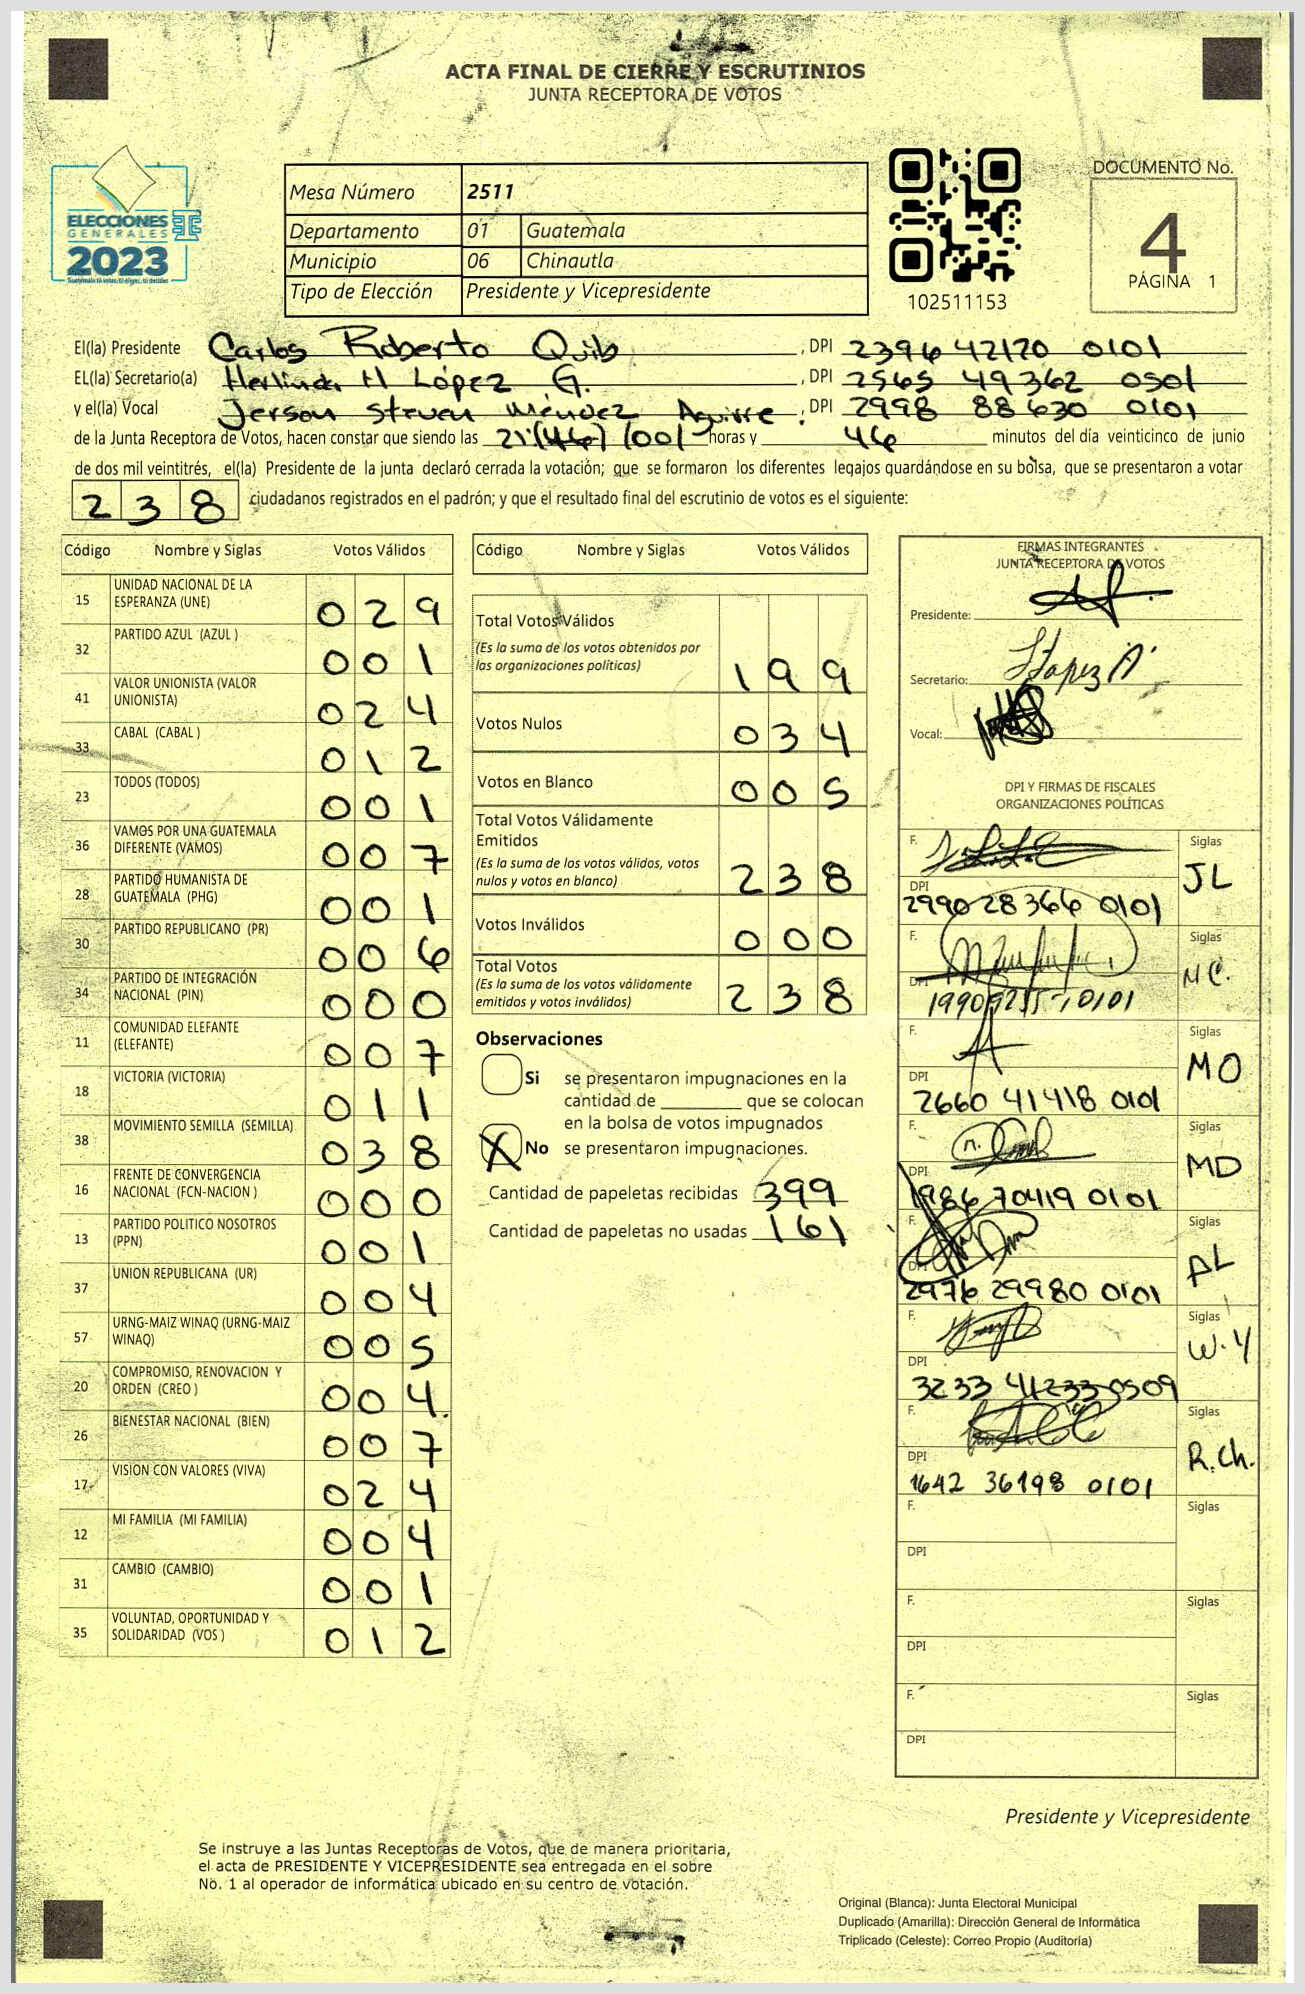 ACTA FINAL DE CIERRE Y ESCRUTINIOS
JUNTA RECEPTORA DE VOTOS
ELECCIONES
GENERALES
2023
Mesa Número 2511
Departamento 01 Guatemala
Municipio 06 Chinautla
Tipo de Elección Presidente y Vicepresidente
102511153
DOCUMENTO No.
4
PÁGINA 1
El(la) Presidente Carlos Roberto Quib, DPI 2396 42170 0101
EL(la) Secretario(a) Herlinda H López G., DPI 2565 49362 0501
y el(la) Vocal Jerson Steven Méndez Aguirre, DPI 2998 88630 0101
de la Junta Receptora de Votos, hacen constar que siendo las 21:(46) (00) horas y 46 minutos del día veinticinco de junio
de dos mil veintitrés, el(la) Presidente de la junta declaró cerrada la votación; que se formaron los diferentes legajos guardándose en su bolsa, que se presentaron a votar
238 ciudadanos registrados en el padrón; y que el resultado final del escrutinio de votos es el siguiente:
Código Nombre y Siglas Votos Válidos
15 UNIDAD NACIONAL DE LA ESPERANZA (UNE) 029
32 PARTIDO AZUL (AZUL ) 001
41 VALOR UNIONISTA (VALOR UNIONISTA) 024
33 CABAL (CABAL ) 012
23 TODOS (TODOS) 001
36 VAMOS POR UNA GUATEMALA DIFERENTE (VAMOS) 007
28 PARTIDO HUMANISTA DE GUATEMALA (PHG) 001
30 PARTIDO REPUBLICANO (PR) 006
34 PARTIDO DE INTEGRACIÓN NACIONAL (PIN) 000
11 COMUNIDAD ELEFANTE (ELEFANTE) 007
18 VICTORIA (VICTORIA) 011
38 MOVIMIENTO SEMILLA (SEMILLA) 038
16 FRENTE DE CONVERGENCIA NACIONAL (FCN-NACION ) 000
13 PARTIDO POLITICO NOSOTROS (PPN) 001
37 UNION REPUBLICANA (UR) 004
57 URNG-MAIZ WINAQ (URNG-MAIZ WINAQ) 005
20 COMPROMISO, RENOVACION Y ORDEN (CREO ) 004
26 BIENESTAR NACIONAL (BIEN) 007
17 VISION CON VALORES (VIVA) 024
12 MI FAMILIA (MI FAMILIA) 004
31 CAMBIO (CAMBIO) 001
35 VOLUNTAD, OPORTUNIDAD Y SOLIDARIDAD (VOS ) 012
Código Nombre y Siglas Votos Válidos
Total Votos Válidos
(Es la suma de los votos obtenidos por
las organizaciones políticas) 199
Votos Nulos 034
Votos en Blanco 005
Total Votos Válidamente
Emitidos
(Es la suma de los votos válidos, votos
nulos y votos en blanco) 238
Votos Inválidos 000
Total Votos
(Es la suma de los votos válidamente
emitidos y votos inválidos) 238
Observaciones
Si se presentaron impugnaciones en la
cantidad de ________ que se colocan
en la bolsa de votos impugnados
X No se presentaron impugnaciones.
Cantidad de papeletas recibidas 399
Cantidad de papeletas no usadas 161
FIRMAS INTEGRANTES
JUNTA RECEPTORA DE VOTOS
Presidente:
Secretario:
Vocal:
DPI Y FIRMAS DE FISCALES
ORGANIZACIONES POLÍTICAS
F. Siglas JL
DPI 2990 28366 0101
F. Siglas MC.
DPI
F. Siglas MO
DPI 2660 41418 0101
F. Siglas MD
DPI 1986 70419 0101
F. Siglas AL
DPI 2976 29980 0101
F. Siglas W.Y
DPI 3233 41233 0509
F. Siglas R.Ch.
DPI 1642 36198 0101
F. Siglas
DPI
F. Siglas
DPI
F. Siglas
DPI
Presidente y Vicepresidente
Se instruye a las Juntas Receptoras de Votos, que de manera prioritaria,
el acta de PRESIDENTE Y VICEPRESIDENTE sea entregada en el sobre
No. 1 al operador de informática ubicado en su centro de votación.
Original (Blanca): Junta Electoral Municipal
Duplicado (Amarilla): Dirección General de Informática
Triplicado (Celeste): Correo Propio (Auditoría)